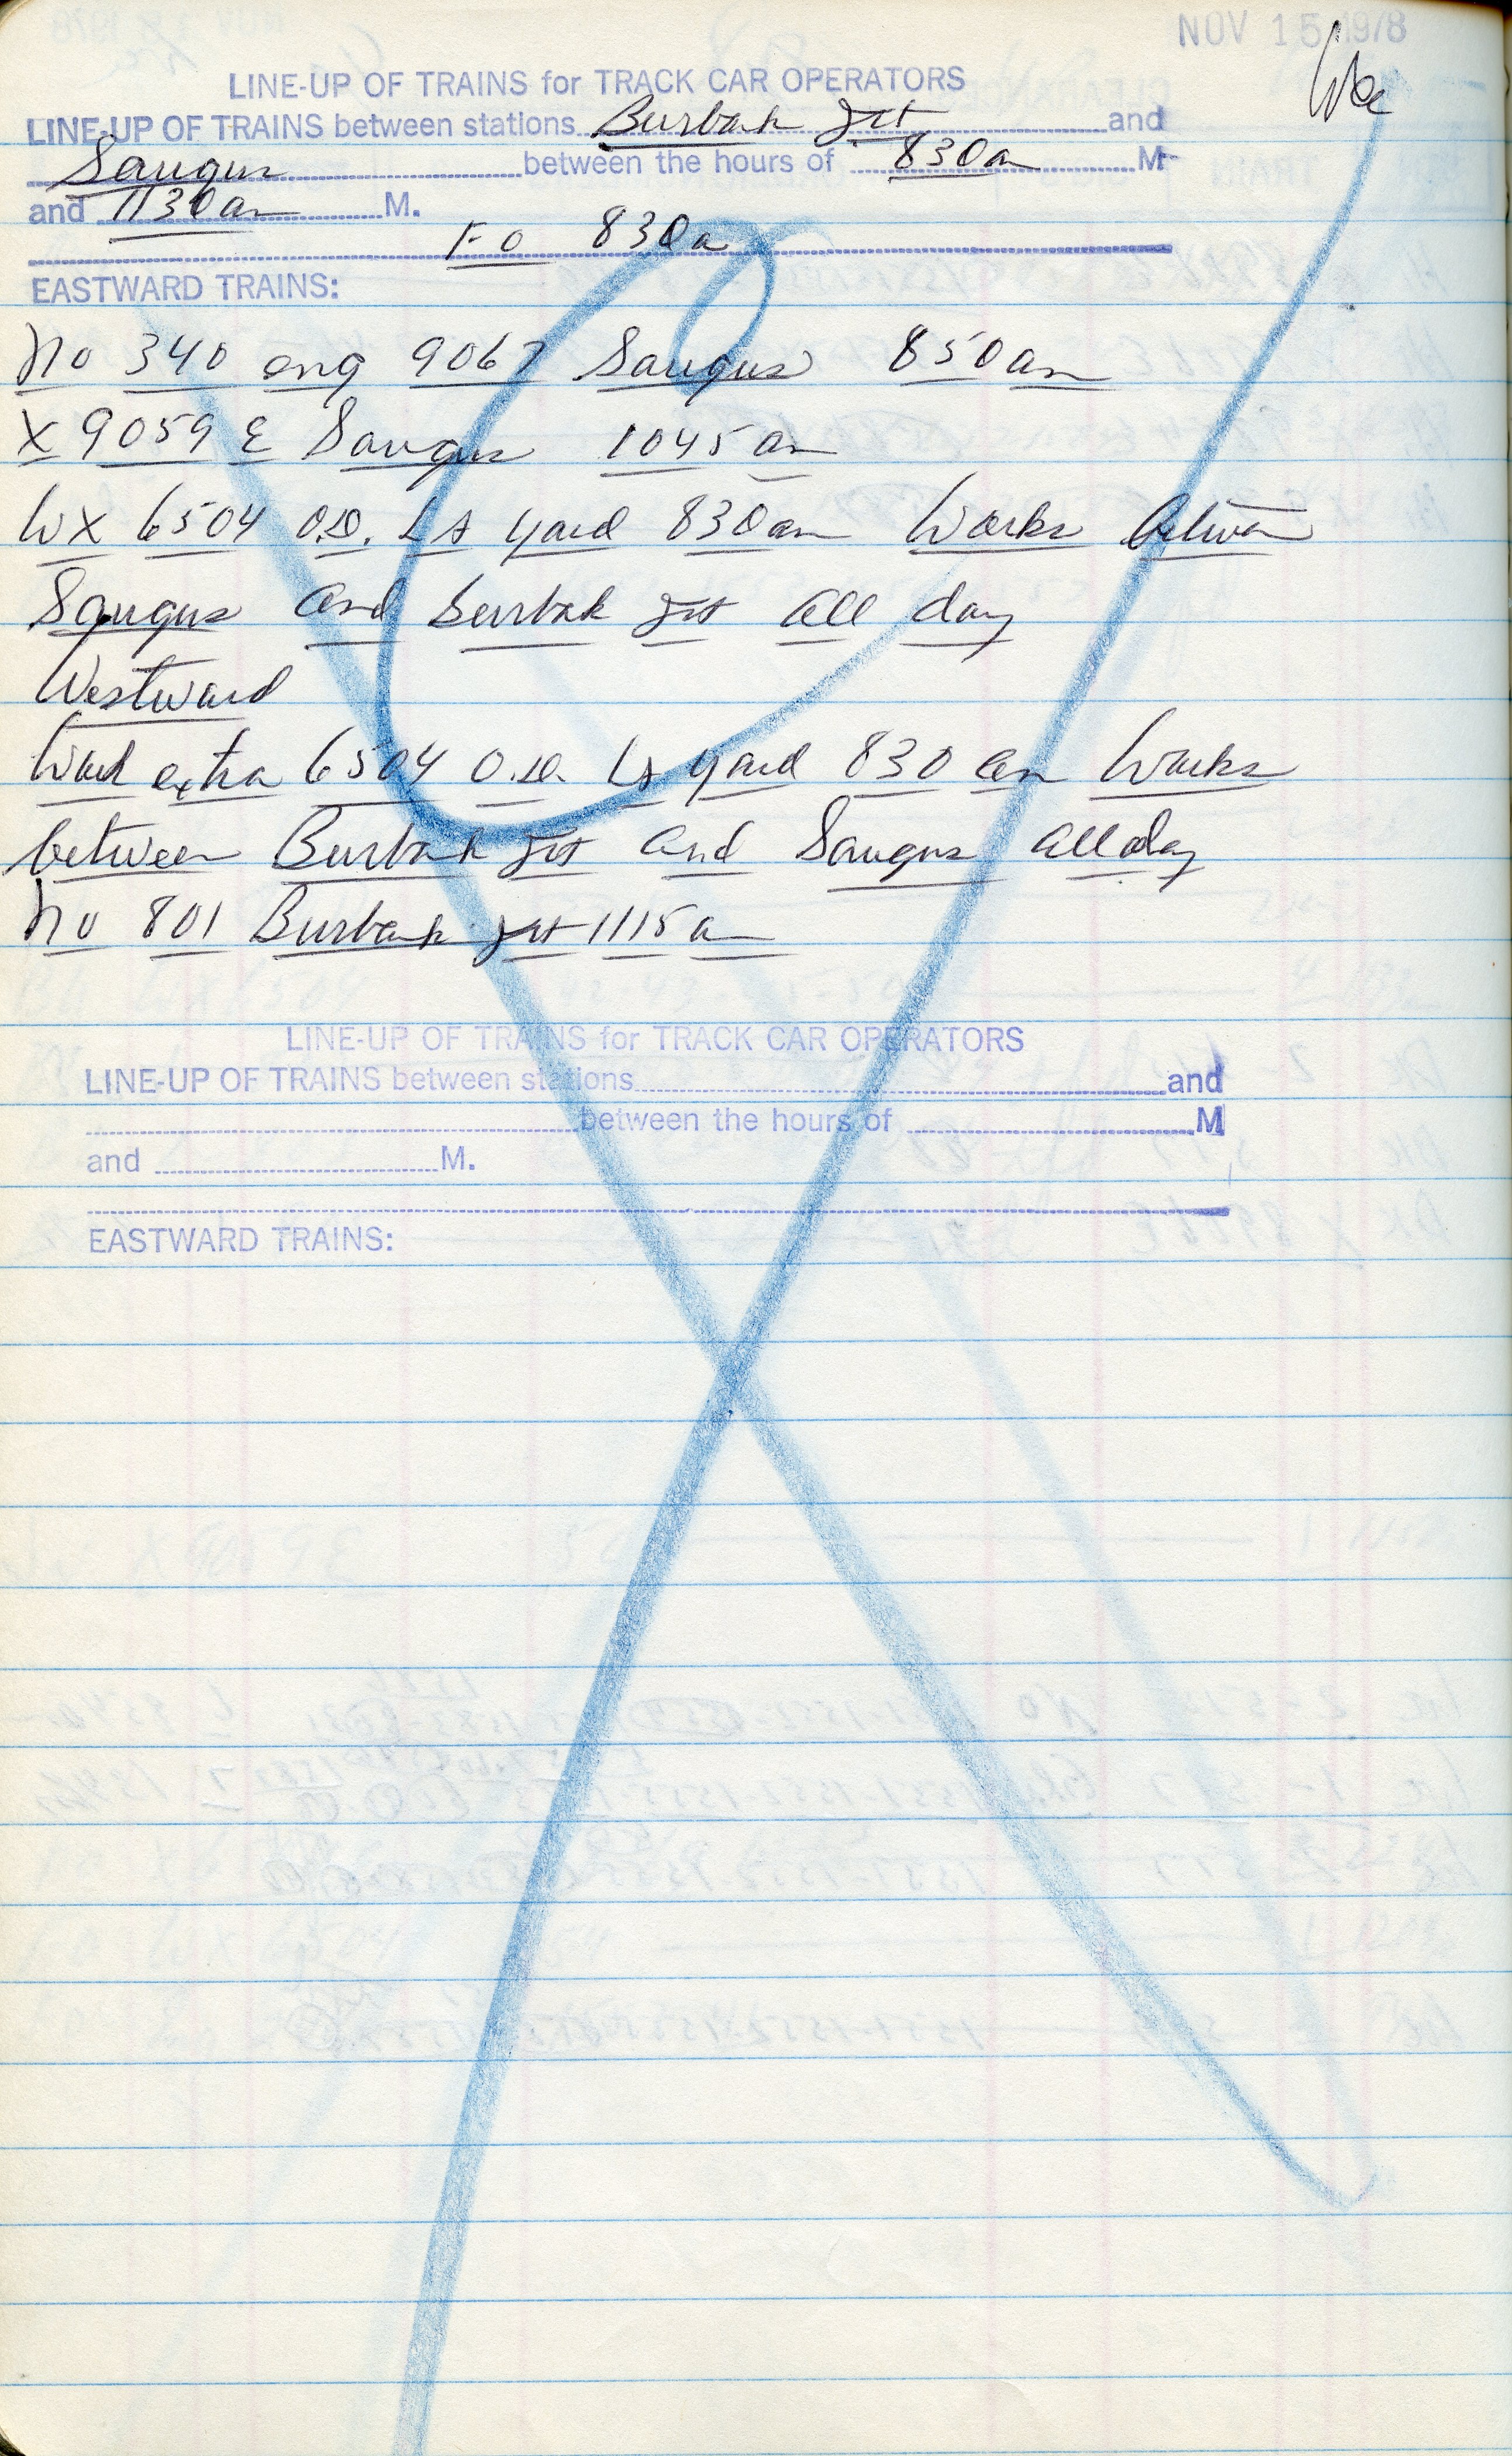 NOV 15 1978
LINE-UP OF TRAINS for TRACK CAR OPERATORS
LINE-UP OF TRAINS between stations Burbank Jct and
Saugus between the hours of 830am M
and 1130am M.
830a
EASTWARD TRAINS:
No 340 eng 9067 Saugus 850am
X 9059 E Saugus 1045am
WX 6504 O.D. LA yard 830am Works between
Saugus and Burbak Jct all day
Westward
Work extra 6504 O.D. LA yard 830 am Works
between Burbank Jct and Saugus all day
No 801 Burbank Jct 1115am
LINE-UP OF TRAINS for TRACK CAR OPERATORS
LINE-UP OF TRAINS between stations and
between the hours of M
and M.
EASTWARD TRAINS: